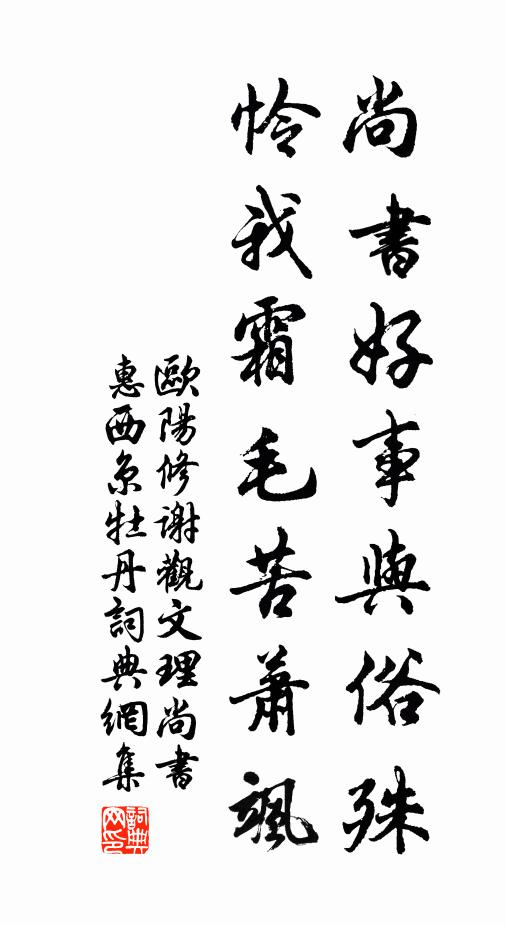 尚書好事與俗殊
怜我霜毛苦蕭颯
歐陽修謝觀文理尚書
惠西京牡丹詞典網集
詞典网印